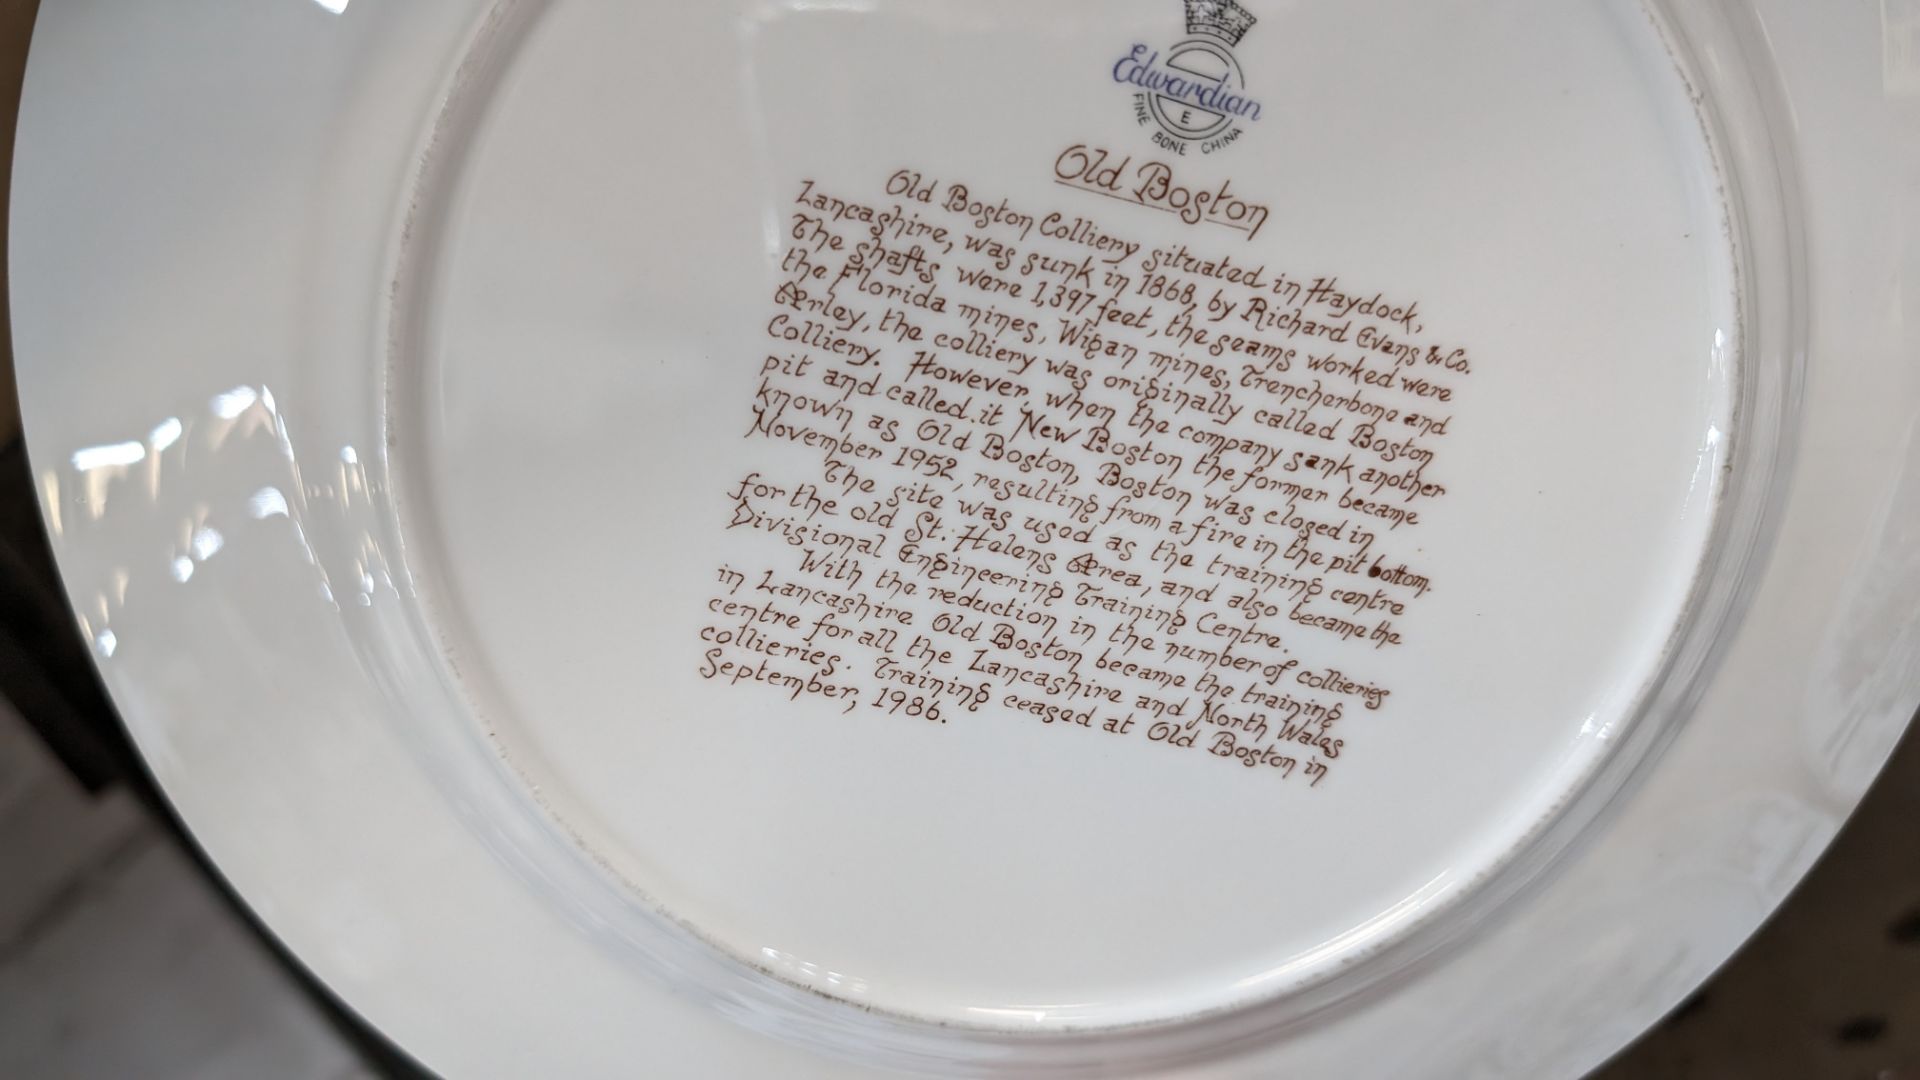 Edwardian
E
FINE BONE CHINA
Old Boston
Old Boston Colliery situated in Haydock,
Lancashire, was sunk in 1868, by Richard Evans & Co.
The shafts were 1,397 feet, the seams worked were
the Florida mines, Wigan mines, Trencherbone and
Arley, the colliery was originally called Boston
Colliery. However, when the company sank another
pit and called it New Boston the former became
known as Old Boston, Boston was closed in
November 1952, resulting from a fire in the pit bottom.
The site was used as the training centre
for the old St. Helens Area, and also became the
Divisional Engineering Training Centre.
With the reduction in the number of collieries
in Lancashire Old Boston became the training
centre for all the Lancashire and North Wales
collieries. Training ceased at Old Boston in
September, 1986.